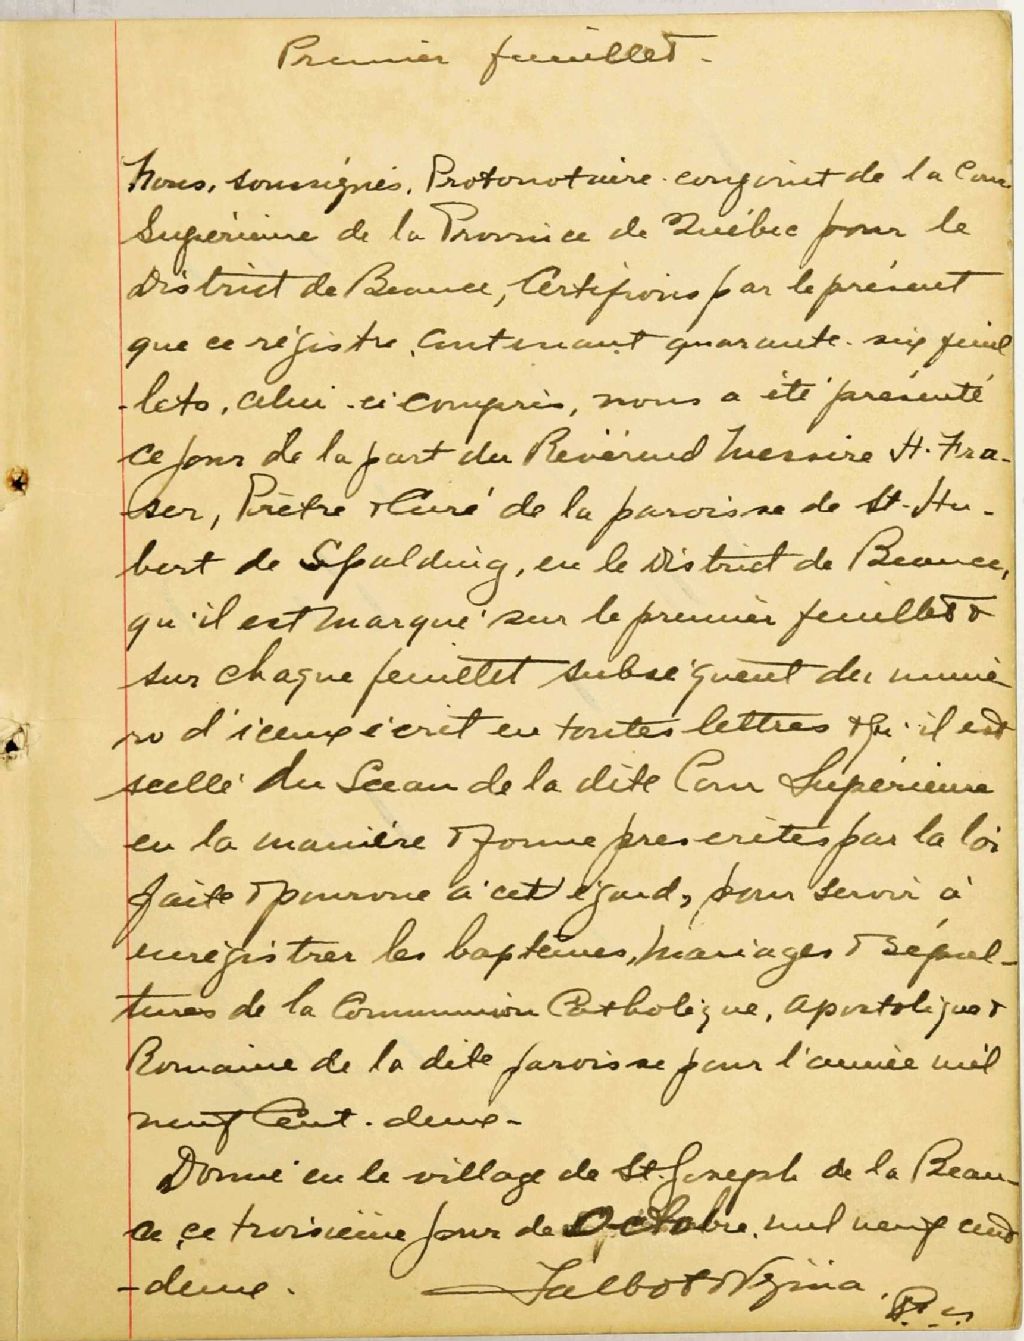 Premier feuillet.
Nous, soussignés, Protonotaire conjoint de la Cour
Supérieure de la Province de Québec pour le
District de Beauce, Certifions par le présent
que ce régistre, contenant quarante-six feuil
-lets, celui-ci compris, nous a été présenté
ce jour de la part du Révérend Messire H. Fra-
ser, Prêtre & Curé de la paroisse de St-Hu-
bert de Spalding, en le District de Beauce,
qu'il est marqué sur le premier feuillet &
sur chaque feuillet subséquent du numé
ro d'iceux écrit en toutes lettres & qu'il est
scellé du Sceau de la dite Cour Supérieure
en la manière & forme prescrites par la loi
faite & pourvue à cet égard, pour servir à
enrégistrer les baptêmes, mariages & sépul-
tures de la Communion Catholique, apostolique &
Romaine de la dite paroisse pour l'année mil
neuf Cent-deux-
Donné en le village de St. Joseph de la Beau-
ce, ce troisième jour de Octobre, mil neuf cent
-deux. Talbot & Vézina,